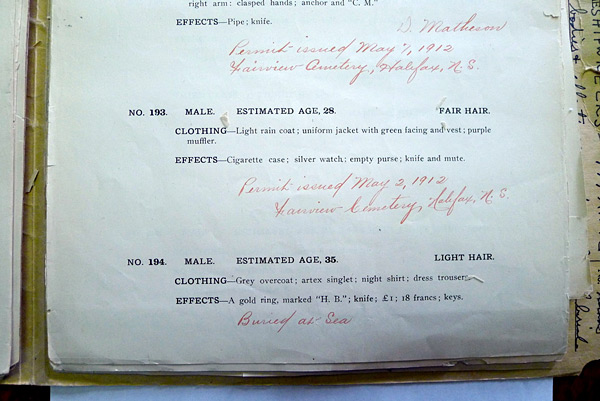 right arm: clasped hands; anchor and "C. M."
EFFECTS—Pipe; knife.
D. Matheson
Permit issued May 7, 1912
Fairview Cemetery, Halifax, N.S.
NO. 193. MALE. ESTIMATED AGE, 28. FAIR HAIR.
CLOTHING—Light rain coat; uniform jacket with green facing and vest; purple
muffler.
EFFECTS—Cigarette case; silver watch; empty purse; knife and mute.
Permit issued May 2, 1912
Fairview Cemetery, Halifax, N.S.
NO. 194. MALE. ESTIMATED AGE, 35. LIGHT HAIR.
CLOTHING—Grey overcoat; artex singlet; night shirt; dress trousers.
EFFECTS—A gold ring, marked "H. B."; knife; £1; 18 francs; keys.
Buried at Sea